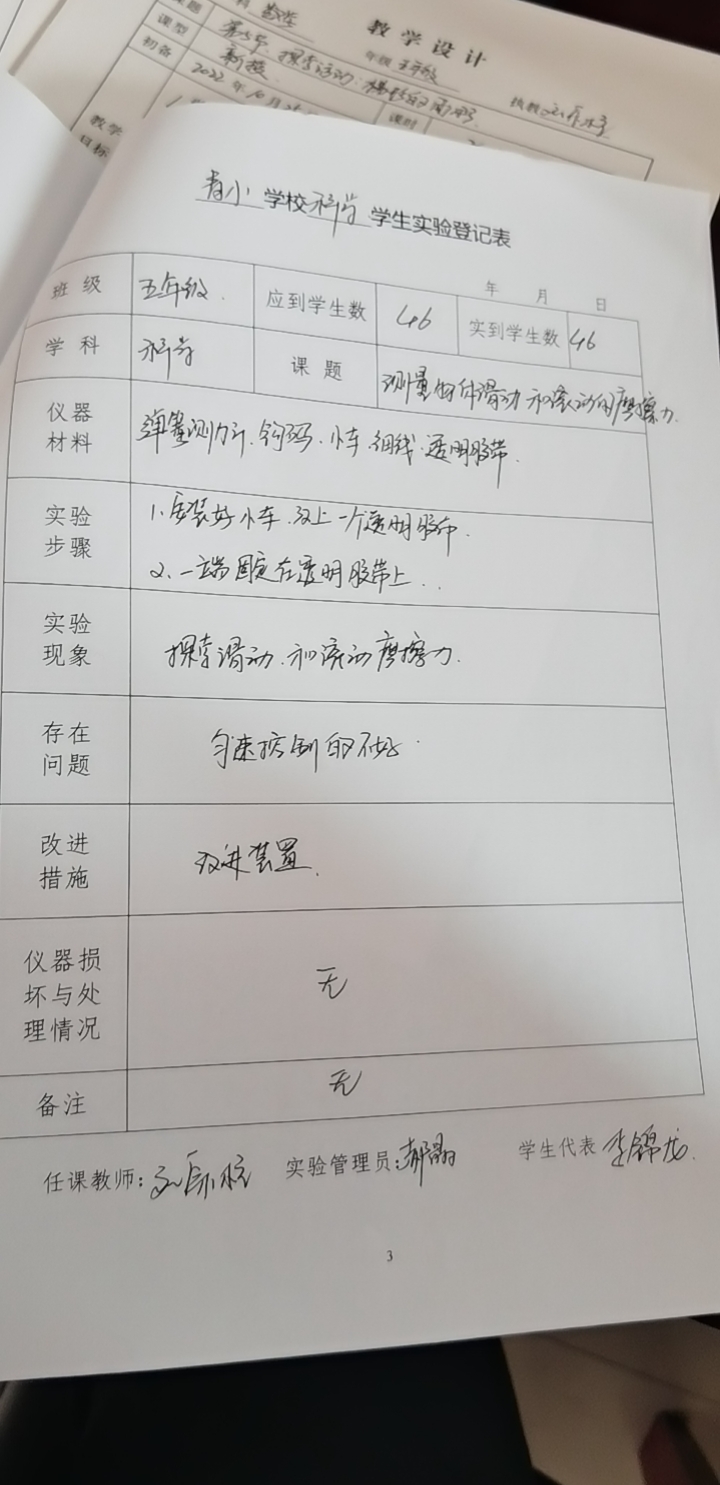 教学设计
年级 五年级
课型 新授
初备 2022年10月
课时
教学
目标
学校科学学生实验登记表
年 月 日
班级 五年级. 应到学生数 46 实到学生数 46
学科 科学 课题 测量物体滑动和滚动的摩擦力.
仪器
材料
弹簧测力计、钩码、小车、细线、透明胶带.
实验
步骤
1.安装好小车、
2、一端固定在透明胶带上.
实验
现象
探索滑动、和滚动摩擦力.
存在
问题
匀速控制的不好.
改进
措施
改进装置.
仪器损
坏与处
理情况
无
备注 无
任课教师:
实验管理员:
学生代表 李锦龙.
3